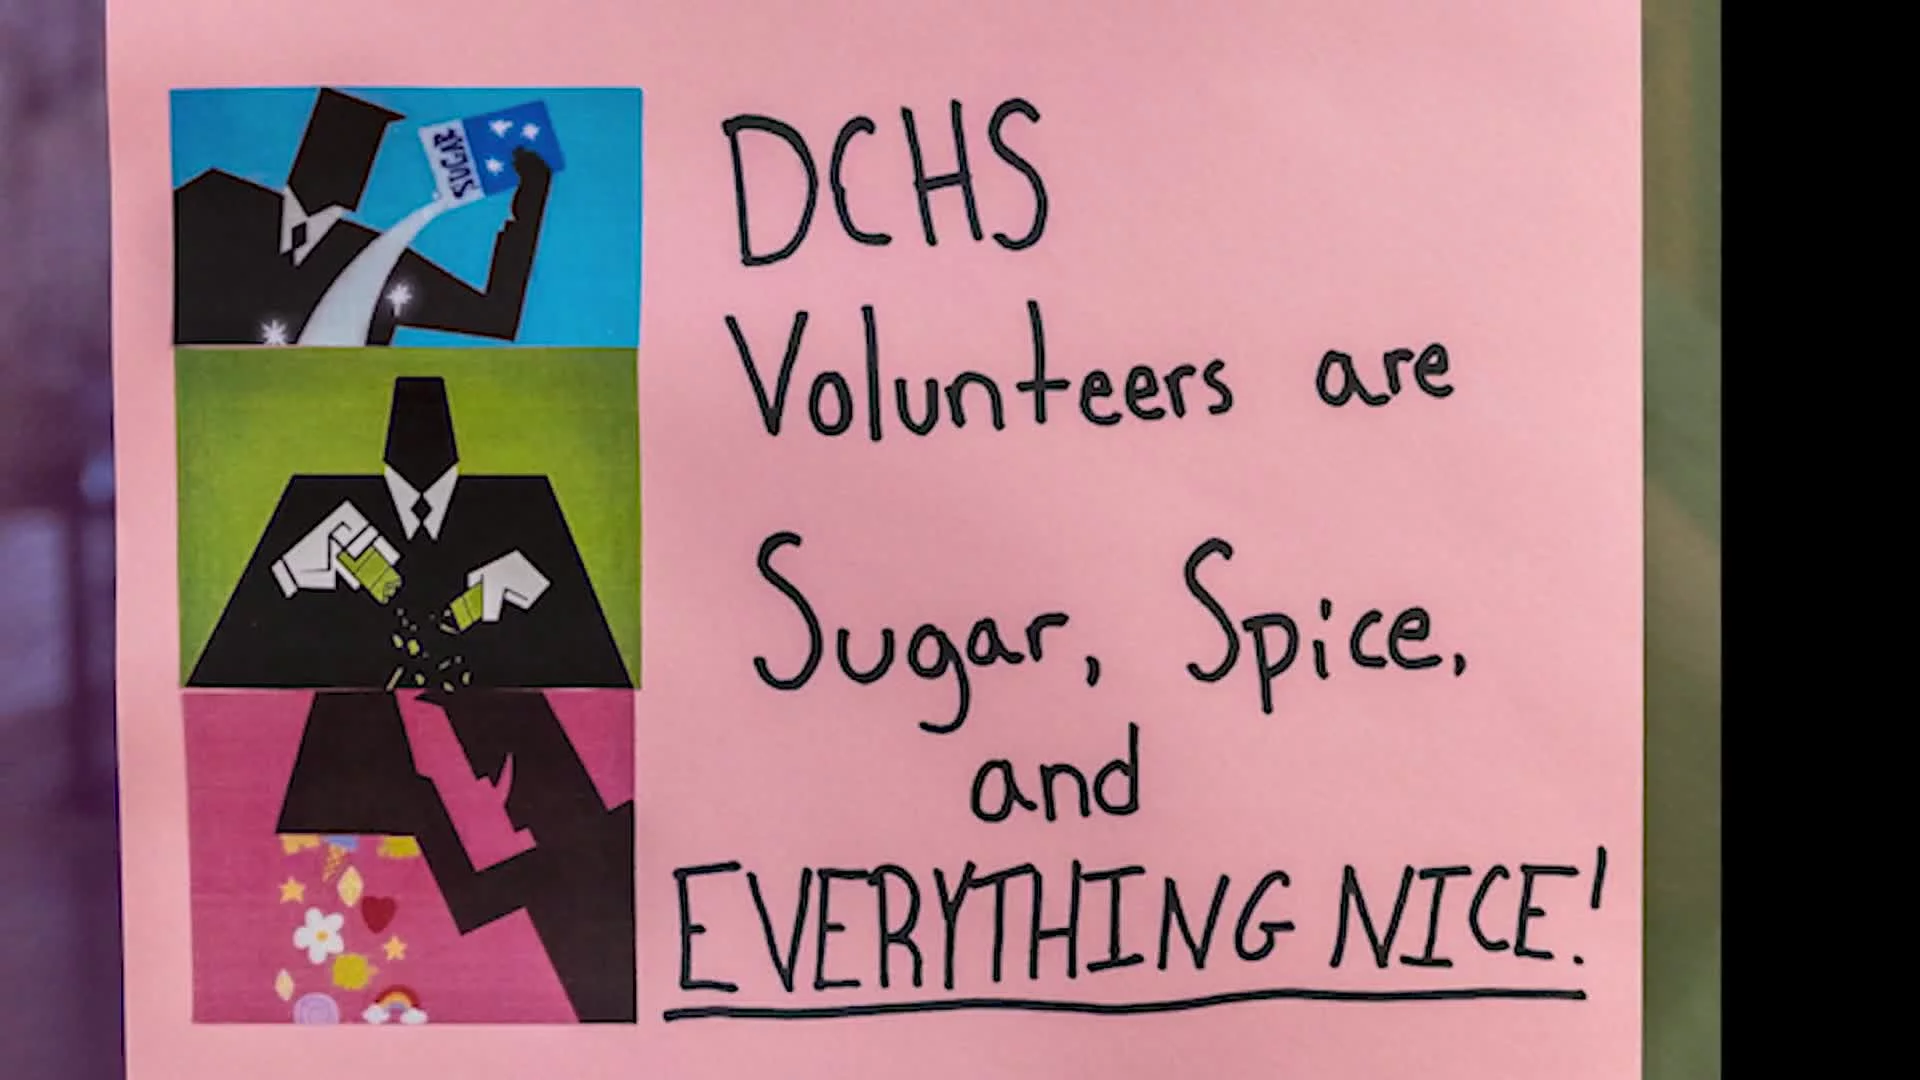 SUGAR
DCHS
Volunteers are
Sugar, Spice,
and
EVERYTHING NICE!